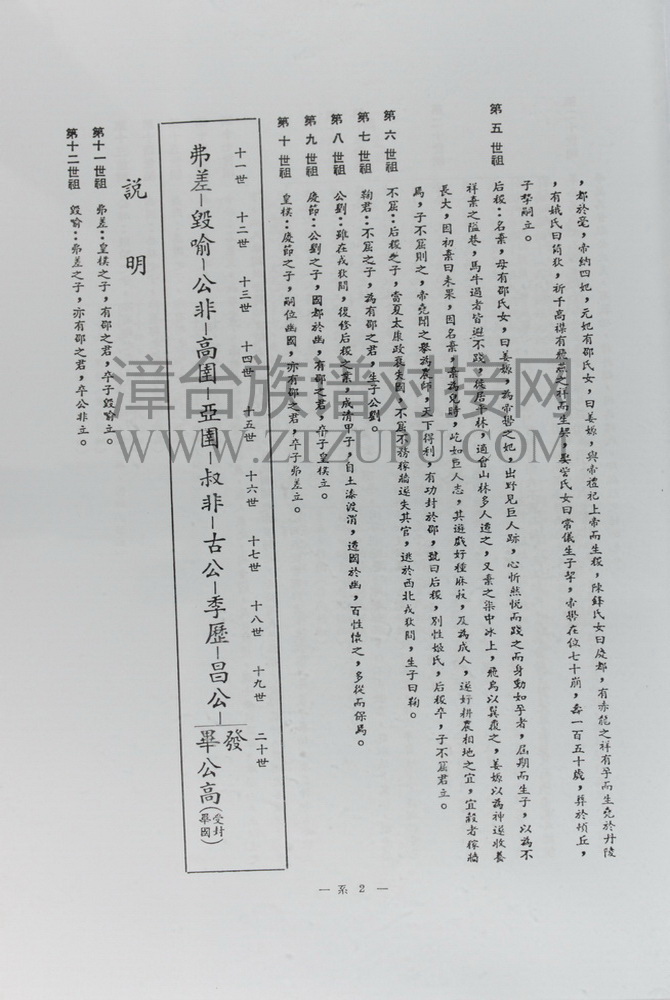 ，都於亳，帝納四妃，元妃有邰氏女，曰姜嫄，與帝禋祀上帝而生稷，陳鋒氏女曰慶都，有赤龍之祥有孕而生堯於丹陵
，有娀氏曰簡狄，祈于高禖有飛燕之祥而生契，娶訾氏女曰常儀生子摯，帝嚳在位七十崩，年一百五十歲，葬於頓丘，
子摯嗣立。
第五世祖 后稷：名棄，母有邰氏女，曰姜嫄，為帝嚳之妃，出野見巨人跡，心忻然悅而踐之而身動如孕者，屆期而生子，以為不
祥棄之隘巷，馬牛過者皆避不踐，徙居平林，適會山林多人遷之，又棄之渠中冰上，飛鳥以翼覆之，姜嫄以為神遂收養
長大，因初棄曰未果，因名棄，棄為兒時，屹如巨人志，其遊戲好種麻菽，及為成人，遂好耕農相地之宜，宜穀者稼穡
焉，子不窋則之，帝堯聞之舉為農師，天下得利，有功封於邰，號曰后稷，別性姬氏，后稷卒，子不窋君立。
第六世祖 不窋：后稷之子，當夏太康政衰失國，不窋不務稼穡遂失其官，逃於西北戎狄間，生子曰鞠。
第七世祖 鞠君：不窋之子，為有邰之君，生子公劉。
第八世祖 公劉：雖在戎狄間，復修后稷之業，咸清甲子，自土漆渡渭，造國於豳，百性懷之，多從而保焉。
第九世祖 慶節：公劉之子，國都於豳，有邰之君，卒子皇僕立。
第十世祖 皇僕：慶節之子，嗣位豳國，亦有邰之君，卒子弗差立。
十一世 十二世 十三世 十四世 十五世 十六世 十七世 十八世 十九世 二十世
弗差－毀喻－公非－高圉－亞圉－叔非－古公－季歷－昌公－發
畢公高（受封畢國）
說明
第十一世祖 弗差：皇僕之子，有邰之君，卒子毀喻立。
第十二世祖 毀喻：弗差之子，亦有邰之君，卒公非立。
— 系 2 —
漳台族譜对接网
WWW.ZTZUPU.COM